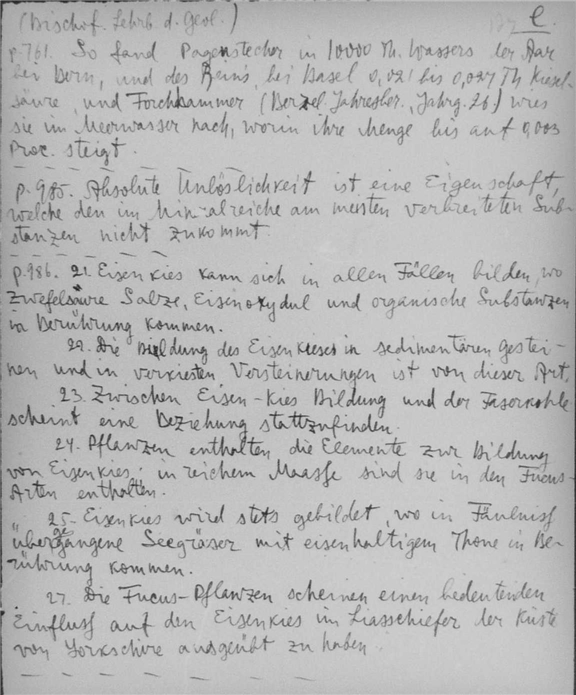 (Bischof. Lehrb. d. Geol.) e.
p. 761. So fand Pagenstecher in 10000 Th. Wassers der Aar
bei Bern, und des Reins, bei Basel 0,021 bis 0,027 Th Kiesel-
säure, und Forchhammer (Berzel. Jahresber., Jahrg. 26) wies
sie im Meerwasser nach, worin ihre Menge bis auf 0,003
Proc. steigt.
p. 985. Absolute Unlöslichkeit ist eine Eigenschaft,
welche den im Mineralreiche am meisten verbreiteten Sub-
stanzen nicht zukommt
p. 986. 21. Eisenkies kann sich in allen Fällen bilden, wo
Zwefelsäure Salze, Eisenoxydul und organische Substanzen
in Berührung kommen.
22. Die Bildung des Eisenkieses in sedimentären Gestei-
nen und in verkiesten Versteinerungen ist von dieser Art.
23. Zwischen Eisen-Kies Bildung und der Faserkohle
scheint eine Beziehung stattzufinden.
24. Pflanzen enthalten die Elemente zur Bildung
von Eisenkies; in reichem Maasse sind sie in den Fucus-
Arten enthalten.
25. Eisenkies wird stets gebildet, wo in Fäulniss
übergegangene Seegrässer mit eisenhaltigem Thone in Be-
rührung kommen.
27. Die Fucus-Pflanzen scheinen einen bedeutenden
Einfluss auf den Eisenkies im Liasschiefer der Küste
von Yorkschire ausgeübt zu haben.